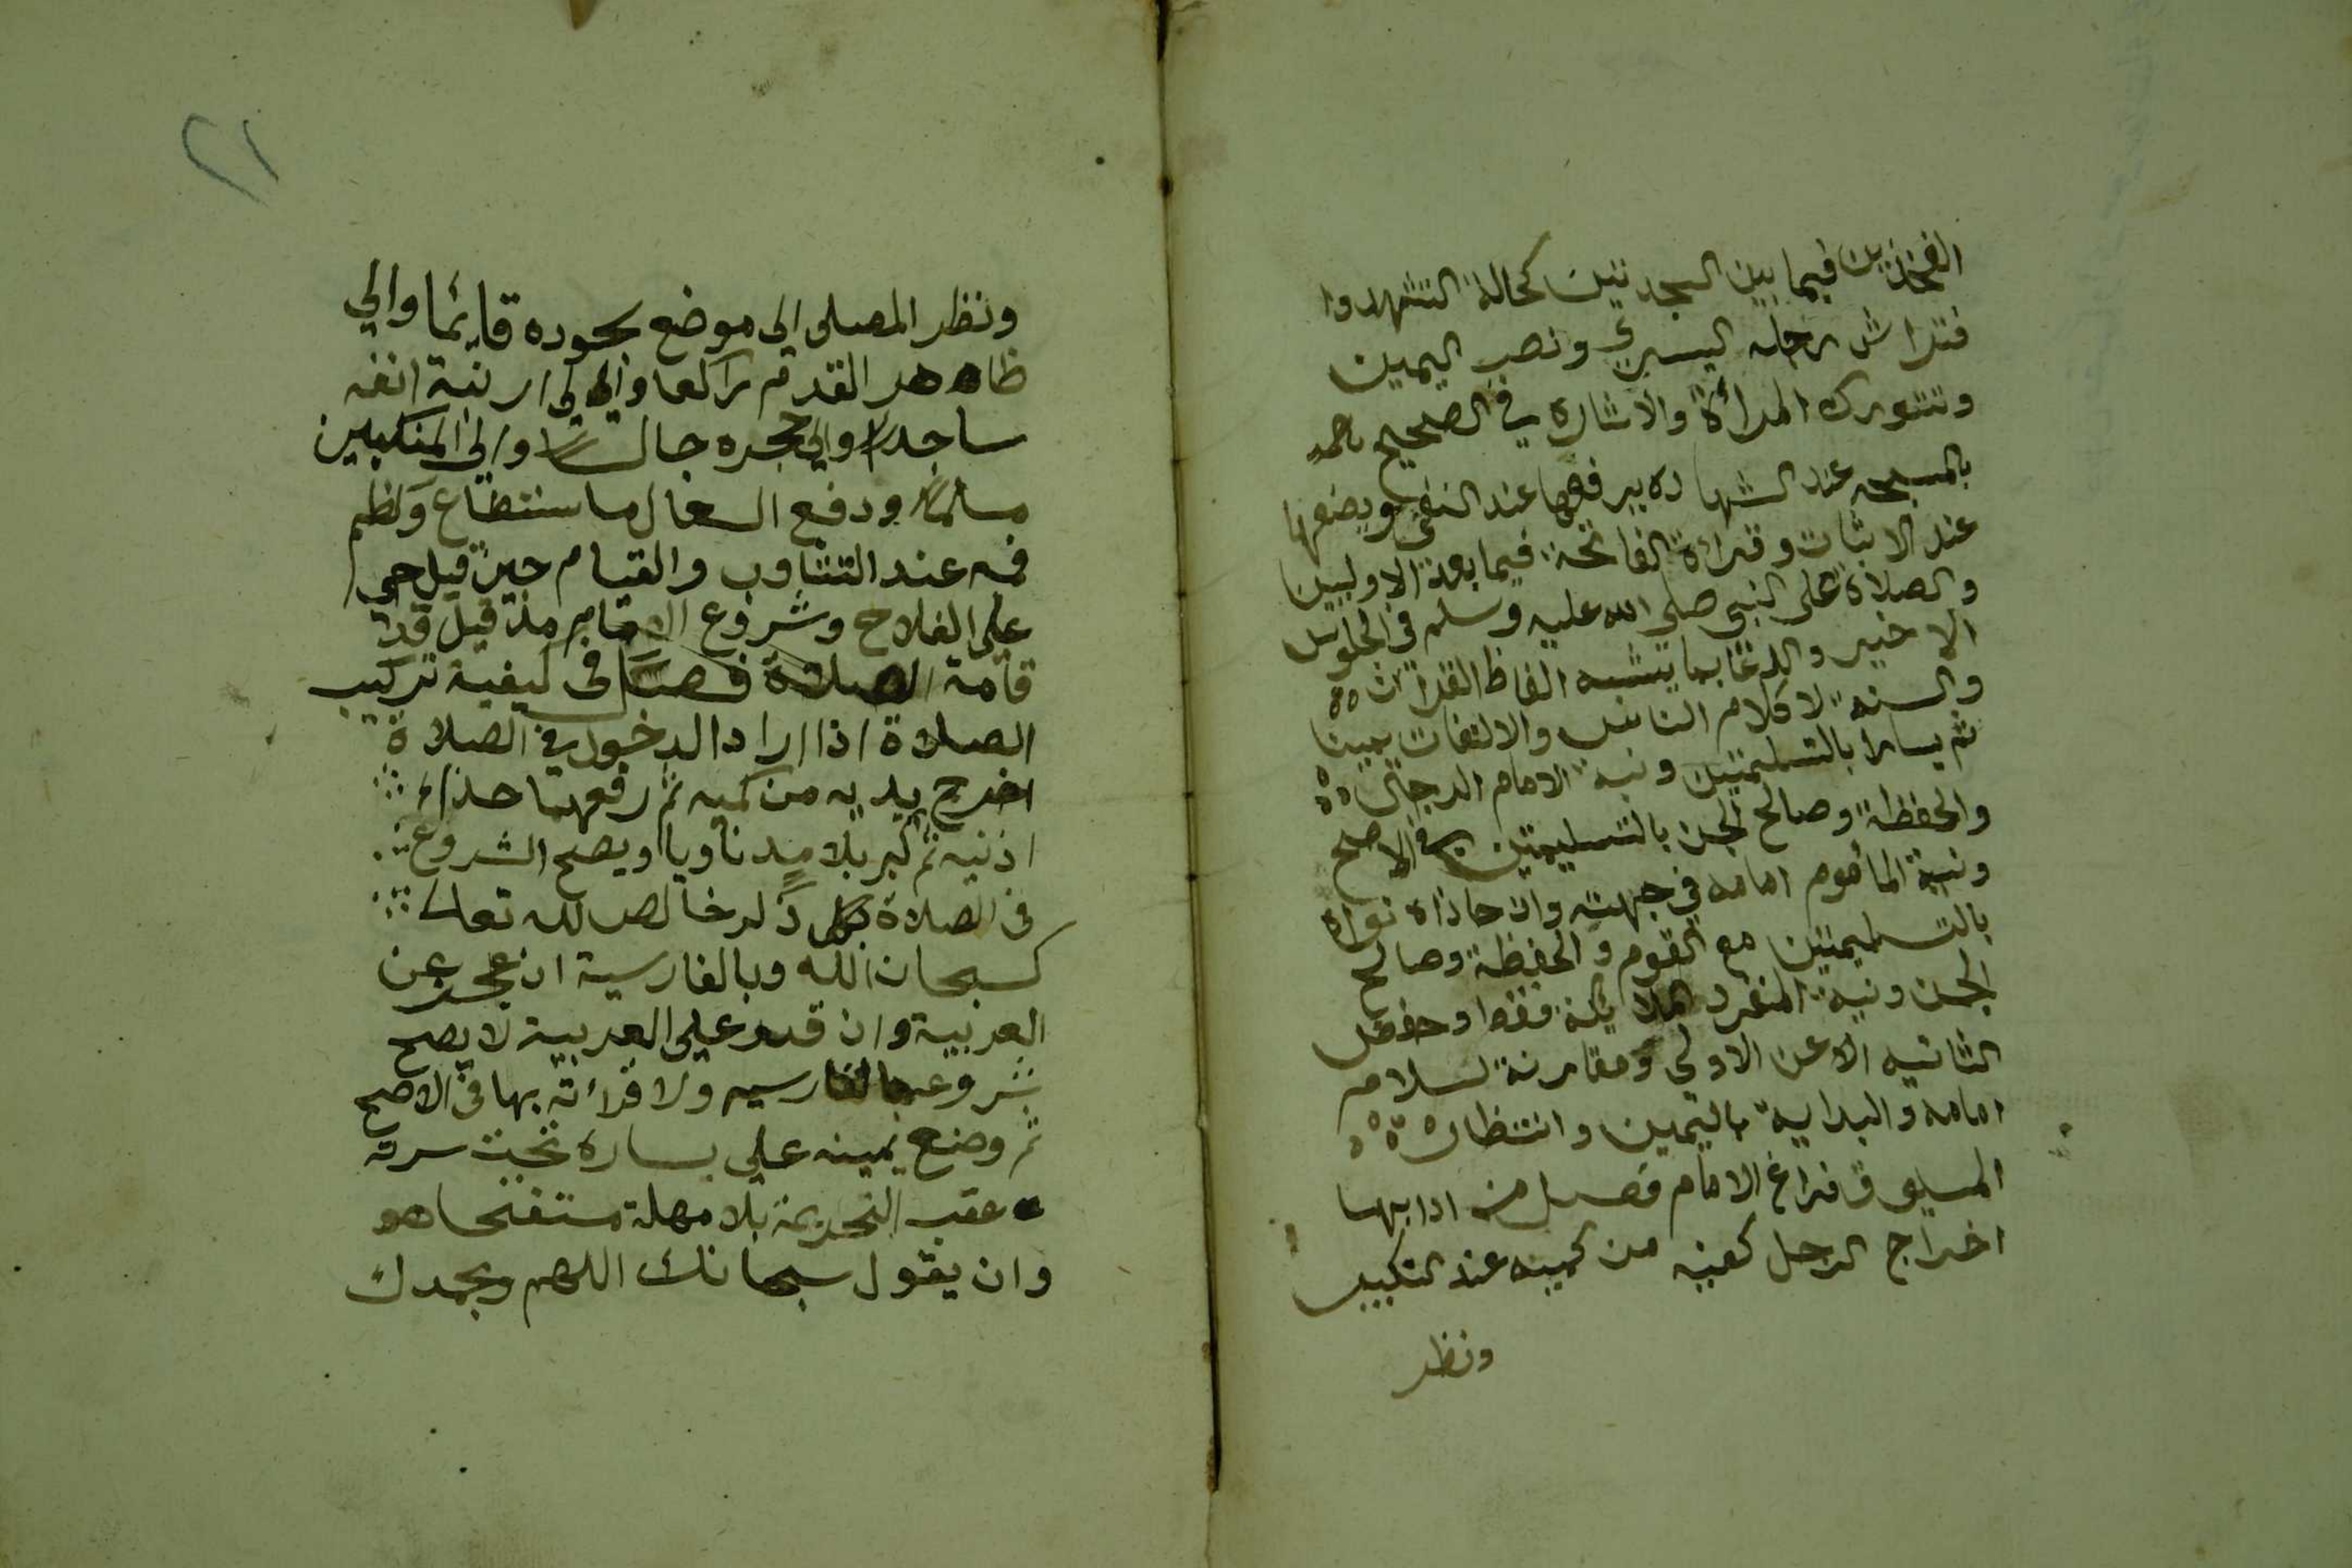 الفخذين فيما بين السجدتين كحالة التشهد وا
فتراش رجله اليسرى ونصب اليمين
وتتورك المرأة والاشارة في الصحيح
بالمسبحه عند الشهاده يرفعها عند النفي ويضعها
عند الاثبات وقراءة الفاتحة فيما بعد الاوليين
والصلاة على النبي صلى الله عليه وسلم في الجلوس
الاخير والدعا بما يشبه الفاظ القران
والسنة لا كلام الناس والالتفات يمينا
ثم يسارا بالتسليمتين ونية الامام الرجال
والحفظة وصالح الجن بالتسليمتين في الاصح
ونية الماموم امامه في جهته وان حاذاه نواه
بالتسليمتين مع القوم والحفظة وصالح
الجن ونية المنفرد الملائكة فقط وخفض
الثانيه الاعن الاولى ومقارنة لسلام
امامه والبداية باليمين وانتظار
المسبوق فراغ الامام فصل من ادابها
اخراج الرجل كفيه من كميه عند التكبير
ونظر
٢١
ونظر المصلى الى موضع سجوده قائما والي
ظاهر القدم راكعا والى ارنبة انفه
ساجدا والى حجره جالسا والى المنكبين
مسلما ودفع السعال ما ستطاع وكظم
فمه عند التثاوب والقيام حين قيل حي
على الفلاح وشروع الامام مذ قيل قد
قامة الصلاة فصل فى كيفية تركيب
الصلاة اذا اراد الدخول في الصلاة
اخرج يديه من كميه ثم رفعهما حذاء
اذنيه ثم كبر بلا مد ناويا ويصح الشروع
فى الصلاة بكل ذكر خالص لله تعالى
كسبحان الله وبالفارسية ان عجز عن
العربية وان قدر على العربية لا يصح
شروعه بالفارسيه ولا قرأته بها فى الاصح
ثم وضع يمينه على يساره تحت سرته
عقب التحريمة بلا مهلة مستفتحا هو
وان يقول سبحانك اللهم وبحمدك